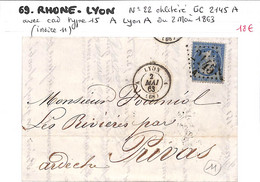 69. RHONE. LYON N° 22 oblitéré GC 2145 A
avec càd type 15 A Lyon A du 2 Mai 1863
(indice 11) 12€
LYON
2
MAI
63
(68)
Monsieur
Les Rivières par
Privas
ardèche
11